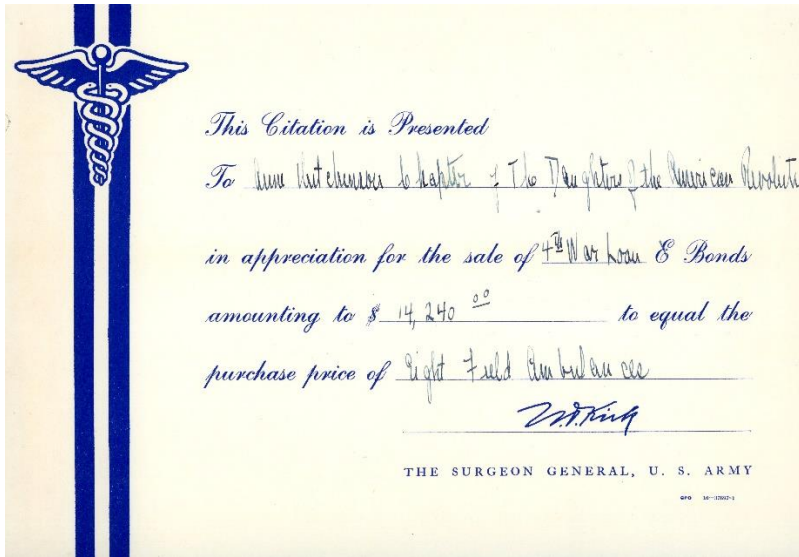 This Citation is Presented
To Anne Hutchinson Chapter of The Daughters of the American Revoluti
in appreciation for the sale of 4th War Loan E Bonds
amounting to $ 14,240 00 to equal the
purchase price of Eight Field Ambulances
N.T. Kirk
THE SURGEON GENERAL, U. S. ARMY
GPO